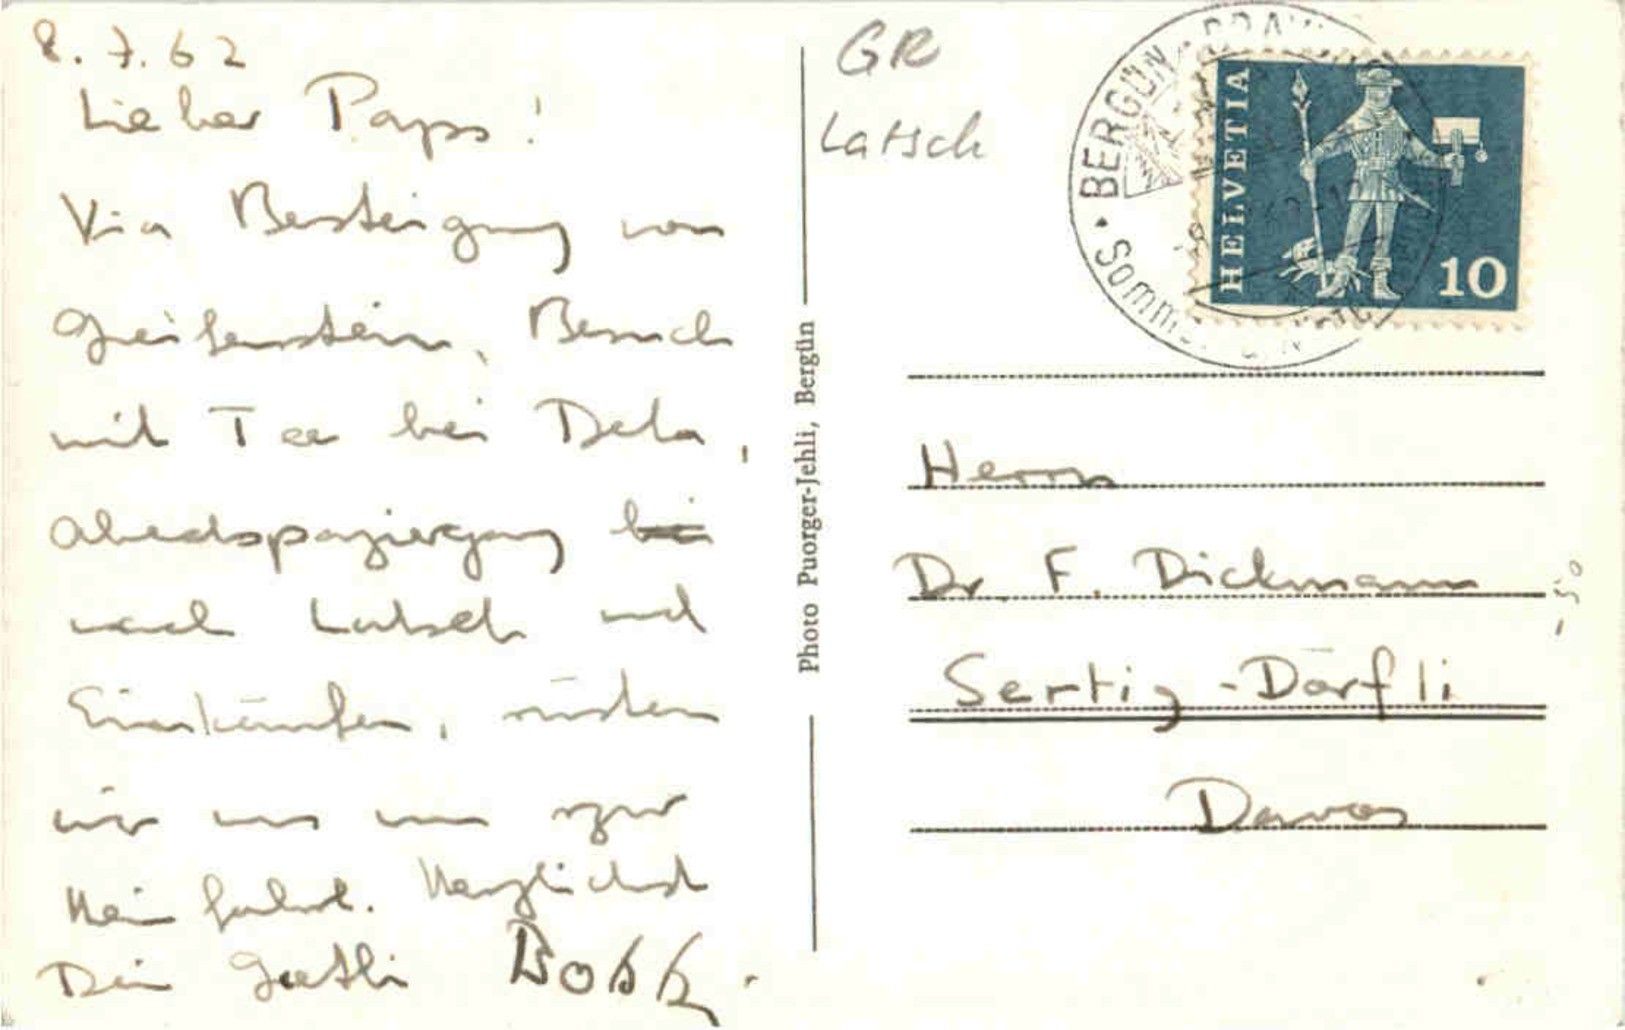 8.7.62
Lieber Paps!
Via Besteigung von
Greifenstein, Besuch
mit Tee bei Dela,
Abendspaziergang bei
nach Latsch und
Einkäufen, rüsten
wir uns nun zur
Heimfahrt. Herzlichst
Dein Goethi Bobby.
Photo Puorger-Jehli, Bergün
GR
Latsch
BERGÜN
Sommer
HELVETIA
10
Herrn
Dr. F. Dickmann
Sertig-Dörfli
Davos